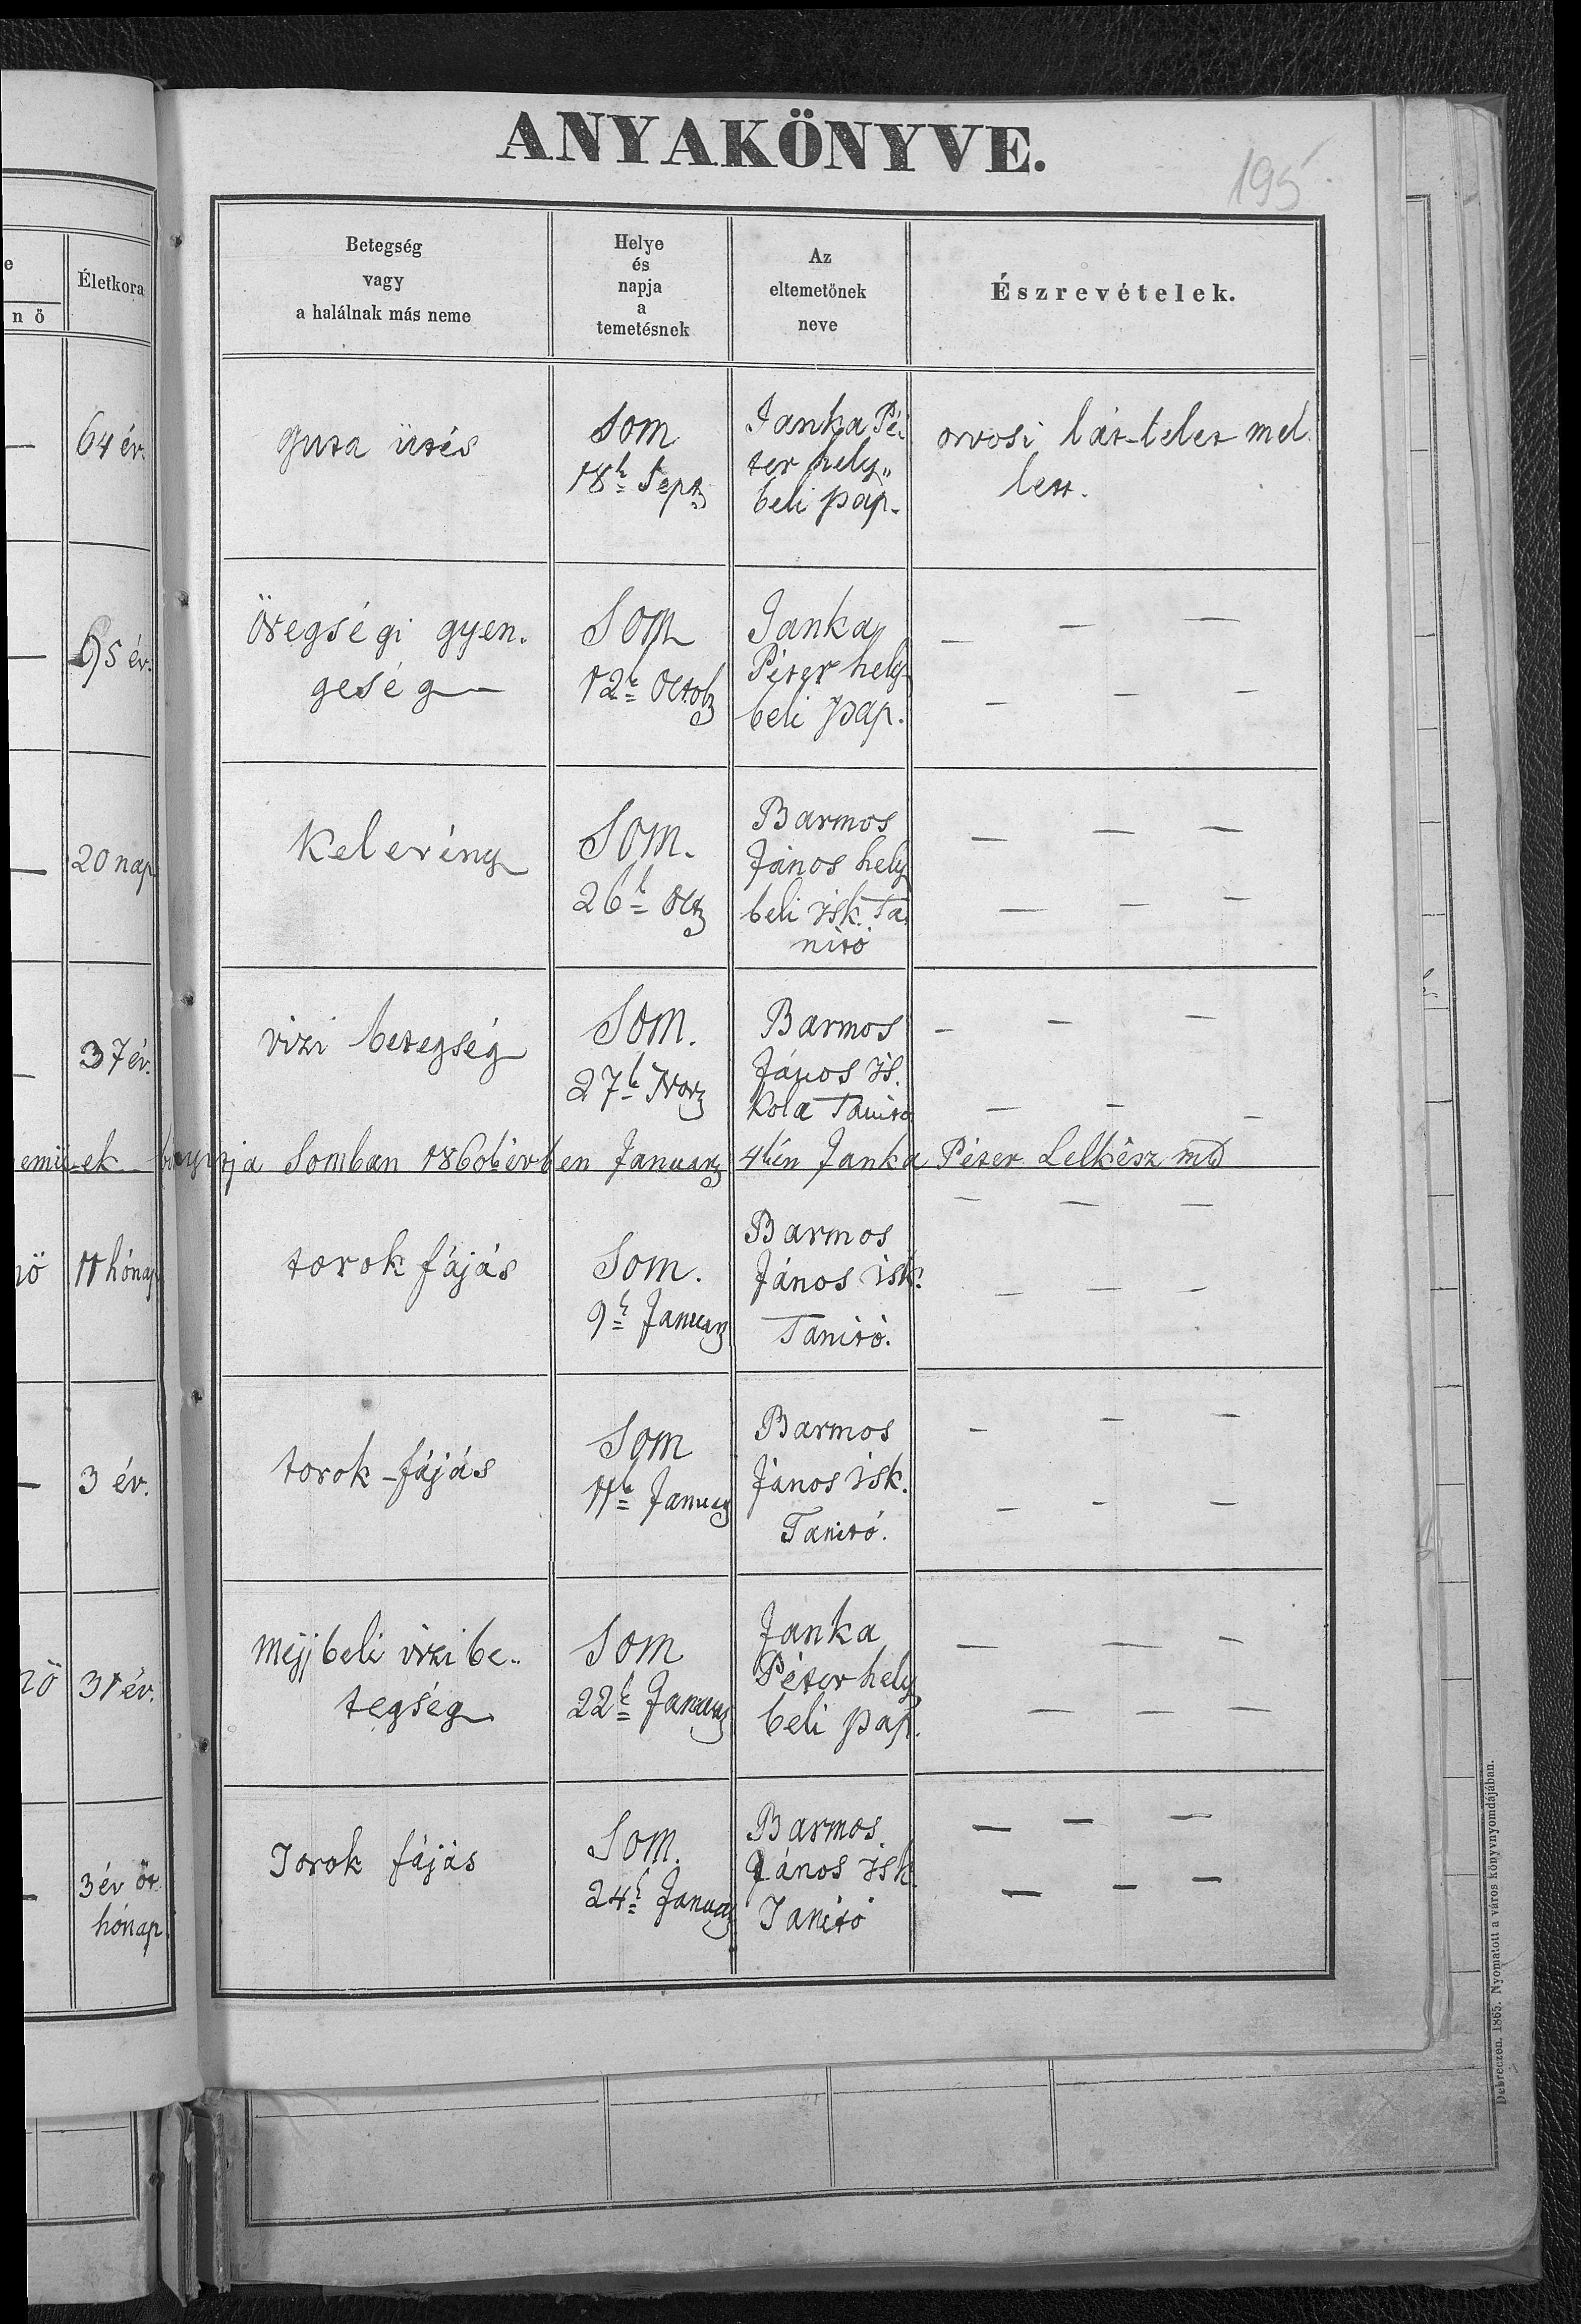 ANYAKÖNYVE.
195
Életkora
nö
Betegség
vagy
a halálnak más neme
Helye
és
napja
a
temetésnek
Az
eltemetőnek
neve
Észrevételek.
64 év.
guta ütés
Som
18k Sept
Janka Pé
ter hely„
beli pap.
orvosi lát-lelet mel.
lett.
95 év.
öregségi gyen.
geség
Som
12k Octob
Janka
Péter hely
beli pap.
20 nap
Kelevény
Som.
26k Oct
Barmos
János hely
beli isk. Ta
nitó
37 év.
vizi betegség
Som.
27k Nov
Barmos
János is.
kola Tanitó
Somban 1866ik évben Januar 4kén Janka Péter Lelkész mk
nö
11 hónap
torok fájás
Som.
9k Januar
Barmos
János isk.
Tanitó.
3 év.
torok-fájás
Som
11k Januar
Barmos
János isk.
Tanitó.
nö
31 év.
mejjbeli vizi be„
tegség
Som
22k Januar
Janka
Péter hely
beli pap.
3 év öt
hónap
Torok fájás
Som.
24k Januar
Barmos
János isk.
Tanitó
Debreczen. 1865. Nyomatott a város könyvnyomdájában.